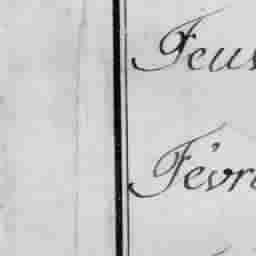 Feuv
Févr